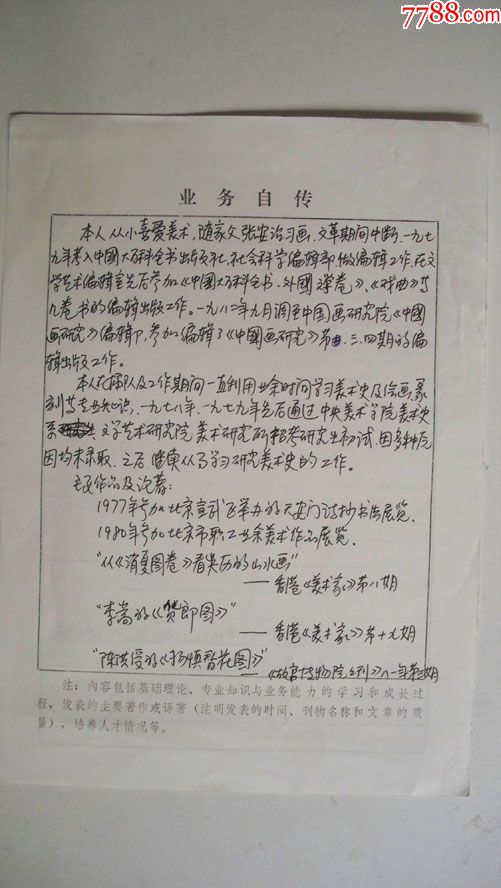 7788.com
业务自传
本人从小喜爱美术，随家父张安治习画，文革期间中断，一九七
九年考入中國大百科全书出版社，社会科学编辑部做编辑工作。在文
学艺术编辑室先后参加《中國大百科全书·外國文学卷》、《戏曲》等
几卷书的编辑出版工作。一九八二年九月调至中国画研究院《中國
画研究》编辑部，参加编辑了《中國画研究》第三、四期的编
辑出版工作。
本人在插队及工作期间一直利用业余时间学习美术史及绘画、篆
刻等专业知识，一九七八年、一九七九年先后通过中央美术学院美术史
系、文学艺术研究院美术研究所招考研究生初试，因多种原
因均未录取，之后继续从事学习研究美术史的工作。
主要作品及论著：
1977年参加北京宣武区举办的天安门诗抄书法展览，
1980年参加北京市职工业余美术作品展览，
“从《消夏图卷》看吴历的山水画”
——香港《美术家》第八期
“李嵩的《货郎图》”
——香港《美术家》第十九期
“陈洪绶的《杨慎簪花图》”
——《故宫博物院院刊》八一年第三期
注：内容包括基础理论、专业知识与业务能力的学习和成长过
程，发表的主要著作或译著（注明发表的时间、刊物名称和文章的质
量），培养人才情况等。